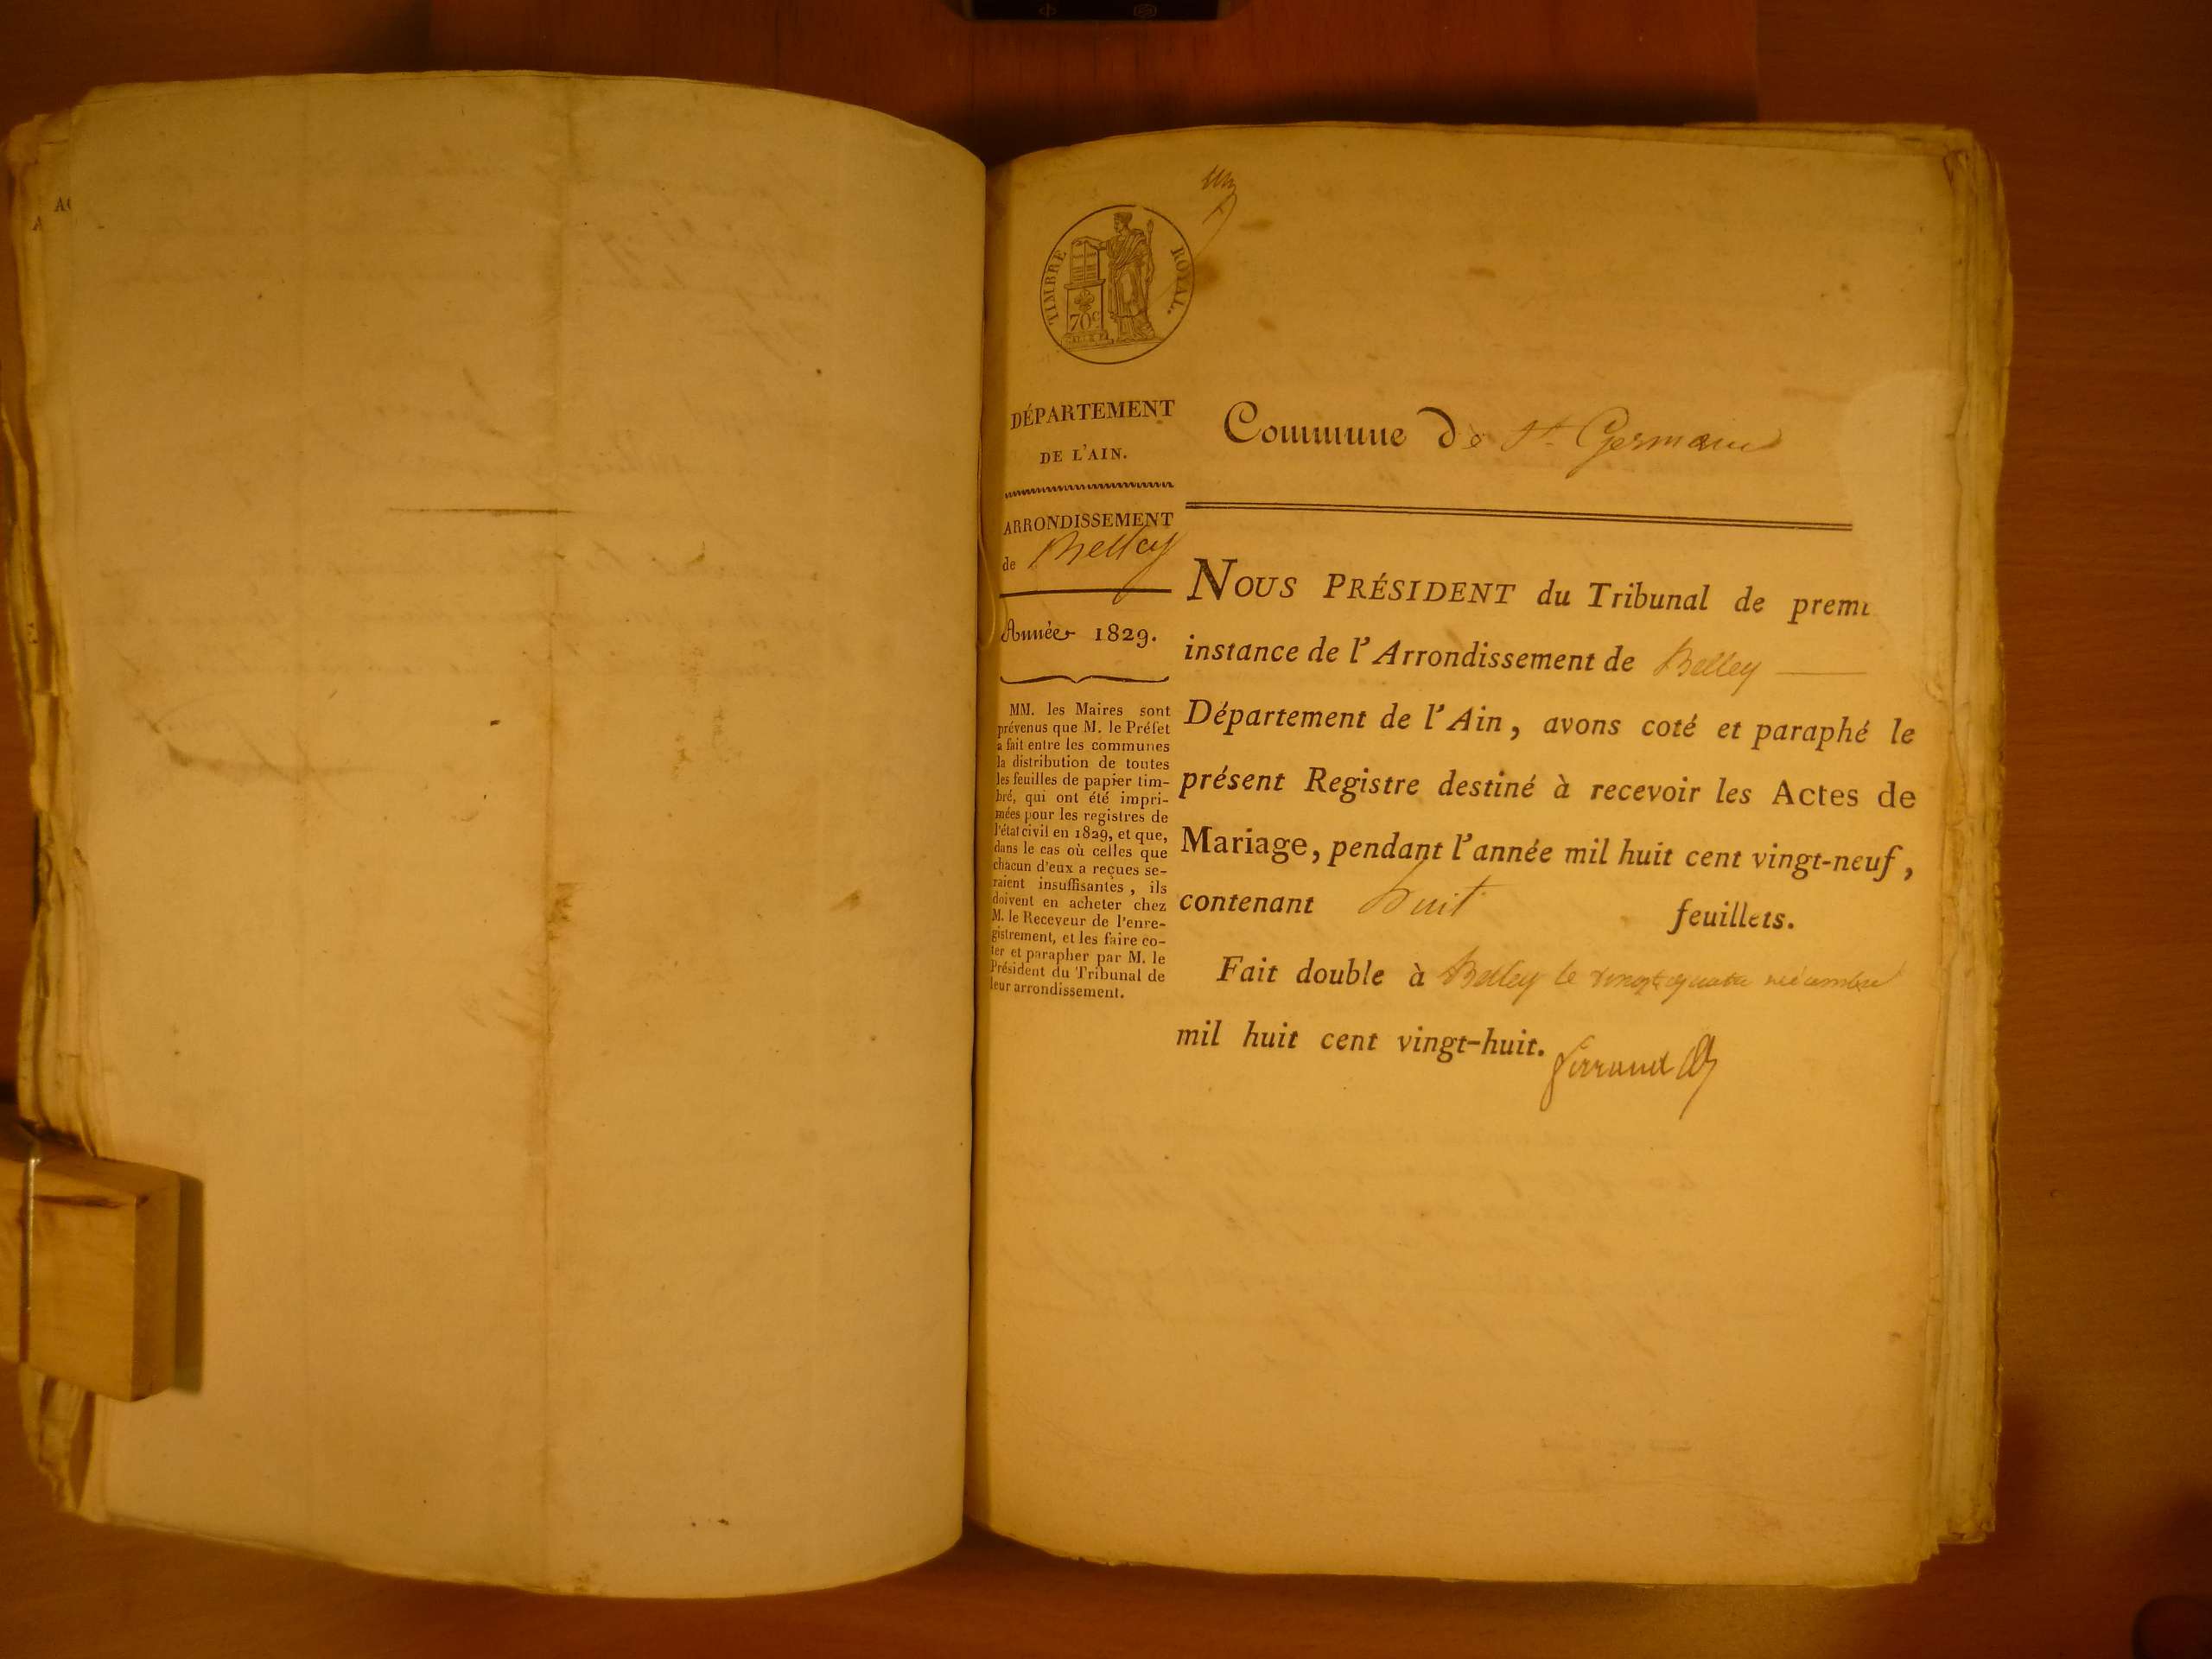 un
TIMBRE ROYAL.
70c
DÉPARTEMENT
DE L'AIN.
ARRONDISSEMENT
de Belley
Année 1829.
MM. les Maires sont
prévenus que M. le Préfet
a fait entre les communes
la distribution de toutes
les feuilles de papier tim-
bré, qui ont été impri-
mées pour les registres de
l'état civil en 1829, et que,
dans le cas où celles que
chacun d'eux a reçues se-
raient insuffisantes, ils
doivent en acheter chez
M. le Receveur de l'enre-
gistrement, et les faire co-
ter et parapher par M. le
Président du Tribunal de
leur arrondissement.
Commune de St Germain
NOUS PRÉSIDENT du Tribunal de premi
instance de l'Arrondissement de Belley
Département de l'Ain, avons coté et paraphé le
présent Registre destiné à recevoir les Actes de
Mariage, pendant l'année mil huit cent vingt-neuf,
contenant huit feuillets.
Fait double à Belley le vingt quatre décembre
mil huit cent vingt-huit.